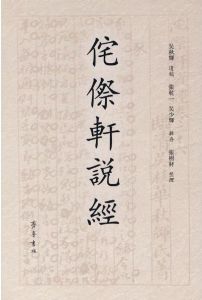 吳秋輝 遺稿 張乾一 吳少輝 輯存 張樹材 整理
侘傺軒說經
齊魯書社